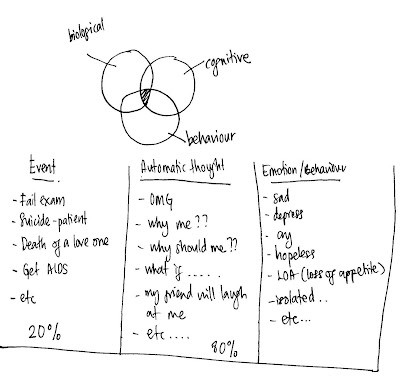 biological
cognitive
behaviour
Event
- Fail exam
- Suicide-patient
- Death of a love one
- Get AIDS
- etc
20%
Automatic thought
- OMG
- why me??
- why should me??
- what if .....
- my friend will laugh
at me
- etc....
80%
Emotion/Behaviour
- sad
- depress
- cry
- hopeless
- LOA (loss of appetite)
- isolated..
- etc...